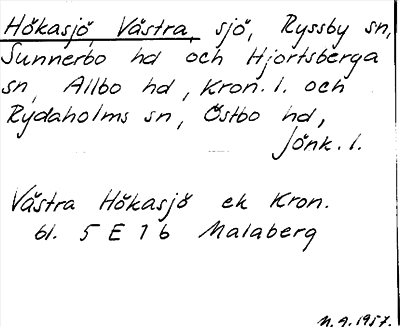 Hökasjö, Västra, sjö, Ryssby sn,
Sunnerbo hd och Hjortsberga
sn, Allbo hd, Kron. l. och
Rydaholms sn, Östbo hd,
Jönk. l.
Västra Hökasjö ek Kron.
bl. 5 E 7 b Malaberg
N.A. 1957.